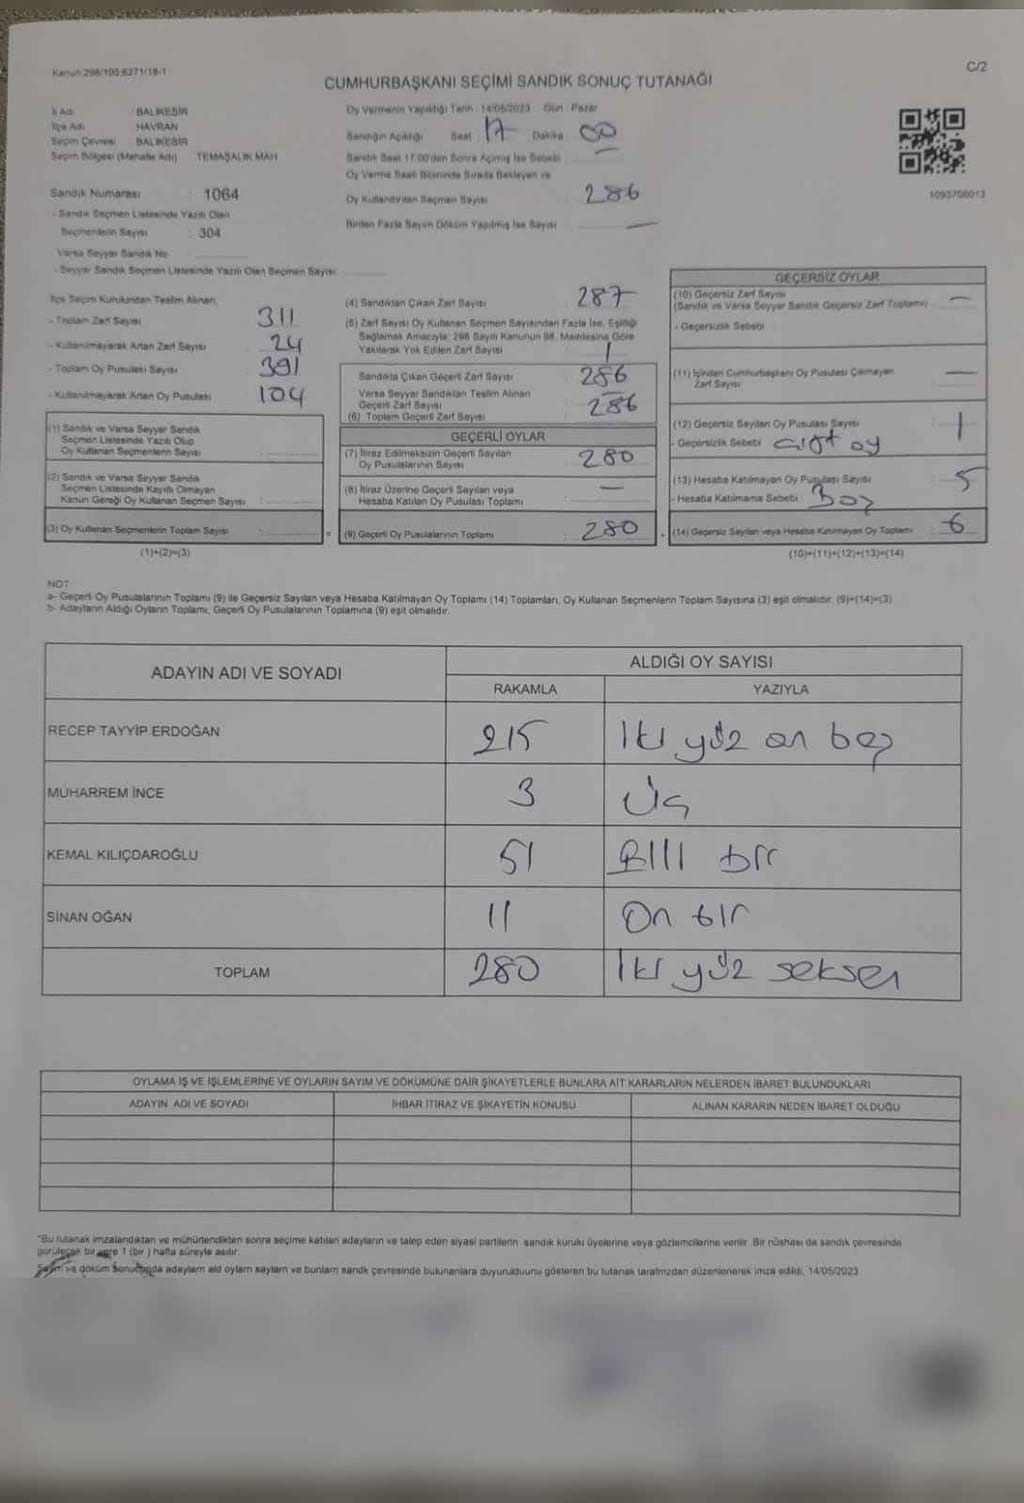 Kanun 298/105:6271/18-1
C/2
CUMHURBAŞKANI SEÇİMİ SANDIK SONUÇ TUTANAĞI
İl Adı : BALIKESİR
İlçe Adı : HAVRAN
Seçim Çevresi : BALIKESİR
Seçim Bölgesi (Mahalle Adı) : TEMAŞALIK MAH
Oy Vermenin Yapıldığı Tarih : 14/05/2023 Gün : Pazar
Sandığın Açıldığı Saat 17 Dakika 00
Sandık Saat 17:00'den Sonra Açılmış İse Sebebi
Oy Verme Saati Bitiminde Sırada Bekleyen ve
Oy Kullandırılan Seçmen Sayısı 286
Birden Fazla Sayım Döküm Yapılmış İse Sayısı —
1093706013
Sandık Numarası : 1064
- Sandık Seçmen Listesinde Yazılı Olan
Seçmenlerin Sayısı : 304
Varsa Seyyar Sandık No
- Seyyar Sandık Seçmen Listesinde Yazılı Olan Seçmen Sayısı
İlçe Seçim Kurulundan Teslim Alınan;
- Toplam Zarf Sayısı 311
- Kullanılmayarak Artan Zarf Sayısı 24
- Toplam Oy Pusulası Sayısı 391
- Kullanılmayarak Artan Oy Pusulası 104
(1) Sandık ve Varsa Seyyar Sandık
Seçmen Listesinde Yazılı Olup
Oy Kullanan Seçmenlerin Sayısı
(2) Sandık ve Varsa Seyyar Sandık
Seçmen Listesinde Kayıtlı Olmayan
Kanun Gereği Oy Kullanan Seçmen Sayısı
(3) Oy Kullanan Seçmenlerin Toplam Sayısı
(1)+(2)=(3)
(4) Sandıktan Çıkan Zarf Sayısı 287
(5) Zarf Sayısı Oy Kullanan Seçmen Sayısından Fazla İse, Eşitliği
Sağlamak Amacıyla; 298 Sayılı Kanunun 98. Maddesine Göre
Yakılarak Yok Edilen Zarf Sayısı 1
Sandıkta Çıkan Geçerli Zarf Sayısı 286
Varsa Seyyar Sandıktan Teslim Alınan
Geçerli Zarf Sayısı
(6) Toplam Geçerli Zarf Sayısı 286
GEÇERLİ OYLAR
(7) İtiraz Edilmeksizin Geçerli Sayılan
Oy Pusulalarının Sayısı 280
(8) İtiraz Üzerine Geçerli Sayılan veya
Hesaba Katılan Oy Pusulası Toplamı —
(9) Geçerli Oy Pusulalarının Toplamı 280
GEÇERSİZ OYLAR
(10) Geçersiz Zarf Sayısı
(Sandık ve Varsa Seyyar Sandık Geçersiz Zarf Toplamı) —
- Geçersizlik Sebebi
(11) İçinden Cumhurbaşkanı Oy Pusulası Çıkmayan
Zarf Sayısı —
(12) Geçersiz Sayılan Oy Pusulası Sayısı 1
- Geçersizlik Sebebi çift oy
(13) Hesaba Katılmayan Oy Pusulası Sayısı 5
- Hesaba Katılmama Sebebi Boş
(14) Geçersiz Sayılan veya Hesaba Katılmayan Oy Toplamı 6
(10)+(11)+(12)+(13)=(14)
NOT
a- Geçerli Oy Pusulalarının Toplamı (9) ile Geçersiz Sayılan veya Hesaba Katılmayan Oy Toplamı (14) Toplamları, Oy Kullanan Seçmenlerin Toplam Sayısına (3) eşit olmalıdır. (9)+(14)=(3)
b- Adayların Aldığı Oyların Toplamı, Geçerli Oy Pusulalarının Toplamına (9) eşit olmalıdır.
ADAYIN ADI VE SOYADI
ALDIĞI OY SAYISI
RAKAMLA YAZIYLA
RECEP TAYYİP ERDOĞAN 215 İki yüz on beş
MUHARREM İNCE 3 Üç
KEMAL KILIÇDAROĞLU 51 Elli bir
SİNAN OĞAN 11 On bir
TOPLAM 280 İki yüz seksen
OYLAMA İŞ VE İŞLEMLERİNE VE OYLARIN SAYIM VE DÖKÜMÜNE DAİR ŞİKAYETLERLE BUNLARA AİT KARARLARIN NELERDEN İBARET BULUNDUKLARI
ADAYIN ADI VE SOYADI İHBAR İTİRAZ VE ŞİKAYETİN KONUSU ALINAN KARARIN NEDEN İBARET OLDUĞU
"Bu tutanak imzalandıktan ve mühürlendikten sonra seçime katılan adayların ve talep eden siyasi partilerin sandık kurulu üyelerine veya gözlemcilerine verilir. Bir nüshası da sandık çevresinde
görülecek bir yere 1 (bir) hafta süreyle asılır.
Sayım ve döküm sonucunda adayların ald oyların sayıları ve bunların sandık çevresinde bulunanlara duyurulduunu gösteren bu tutanak tarafımızdan düzenlenerek imza edildi. 14/05/2023